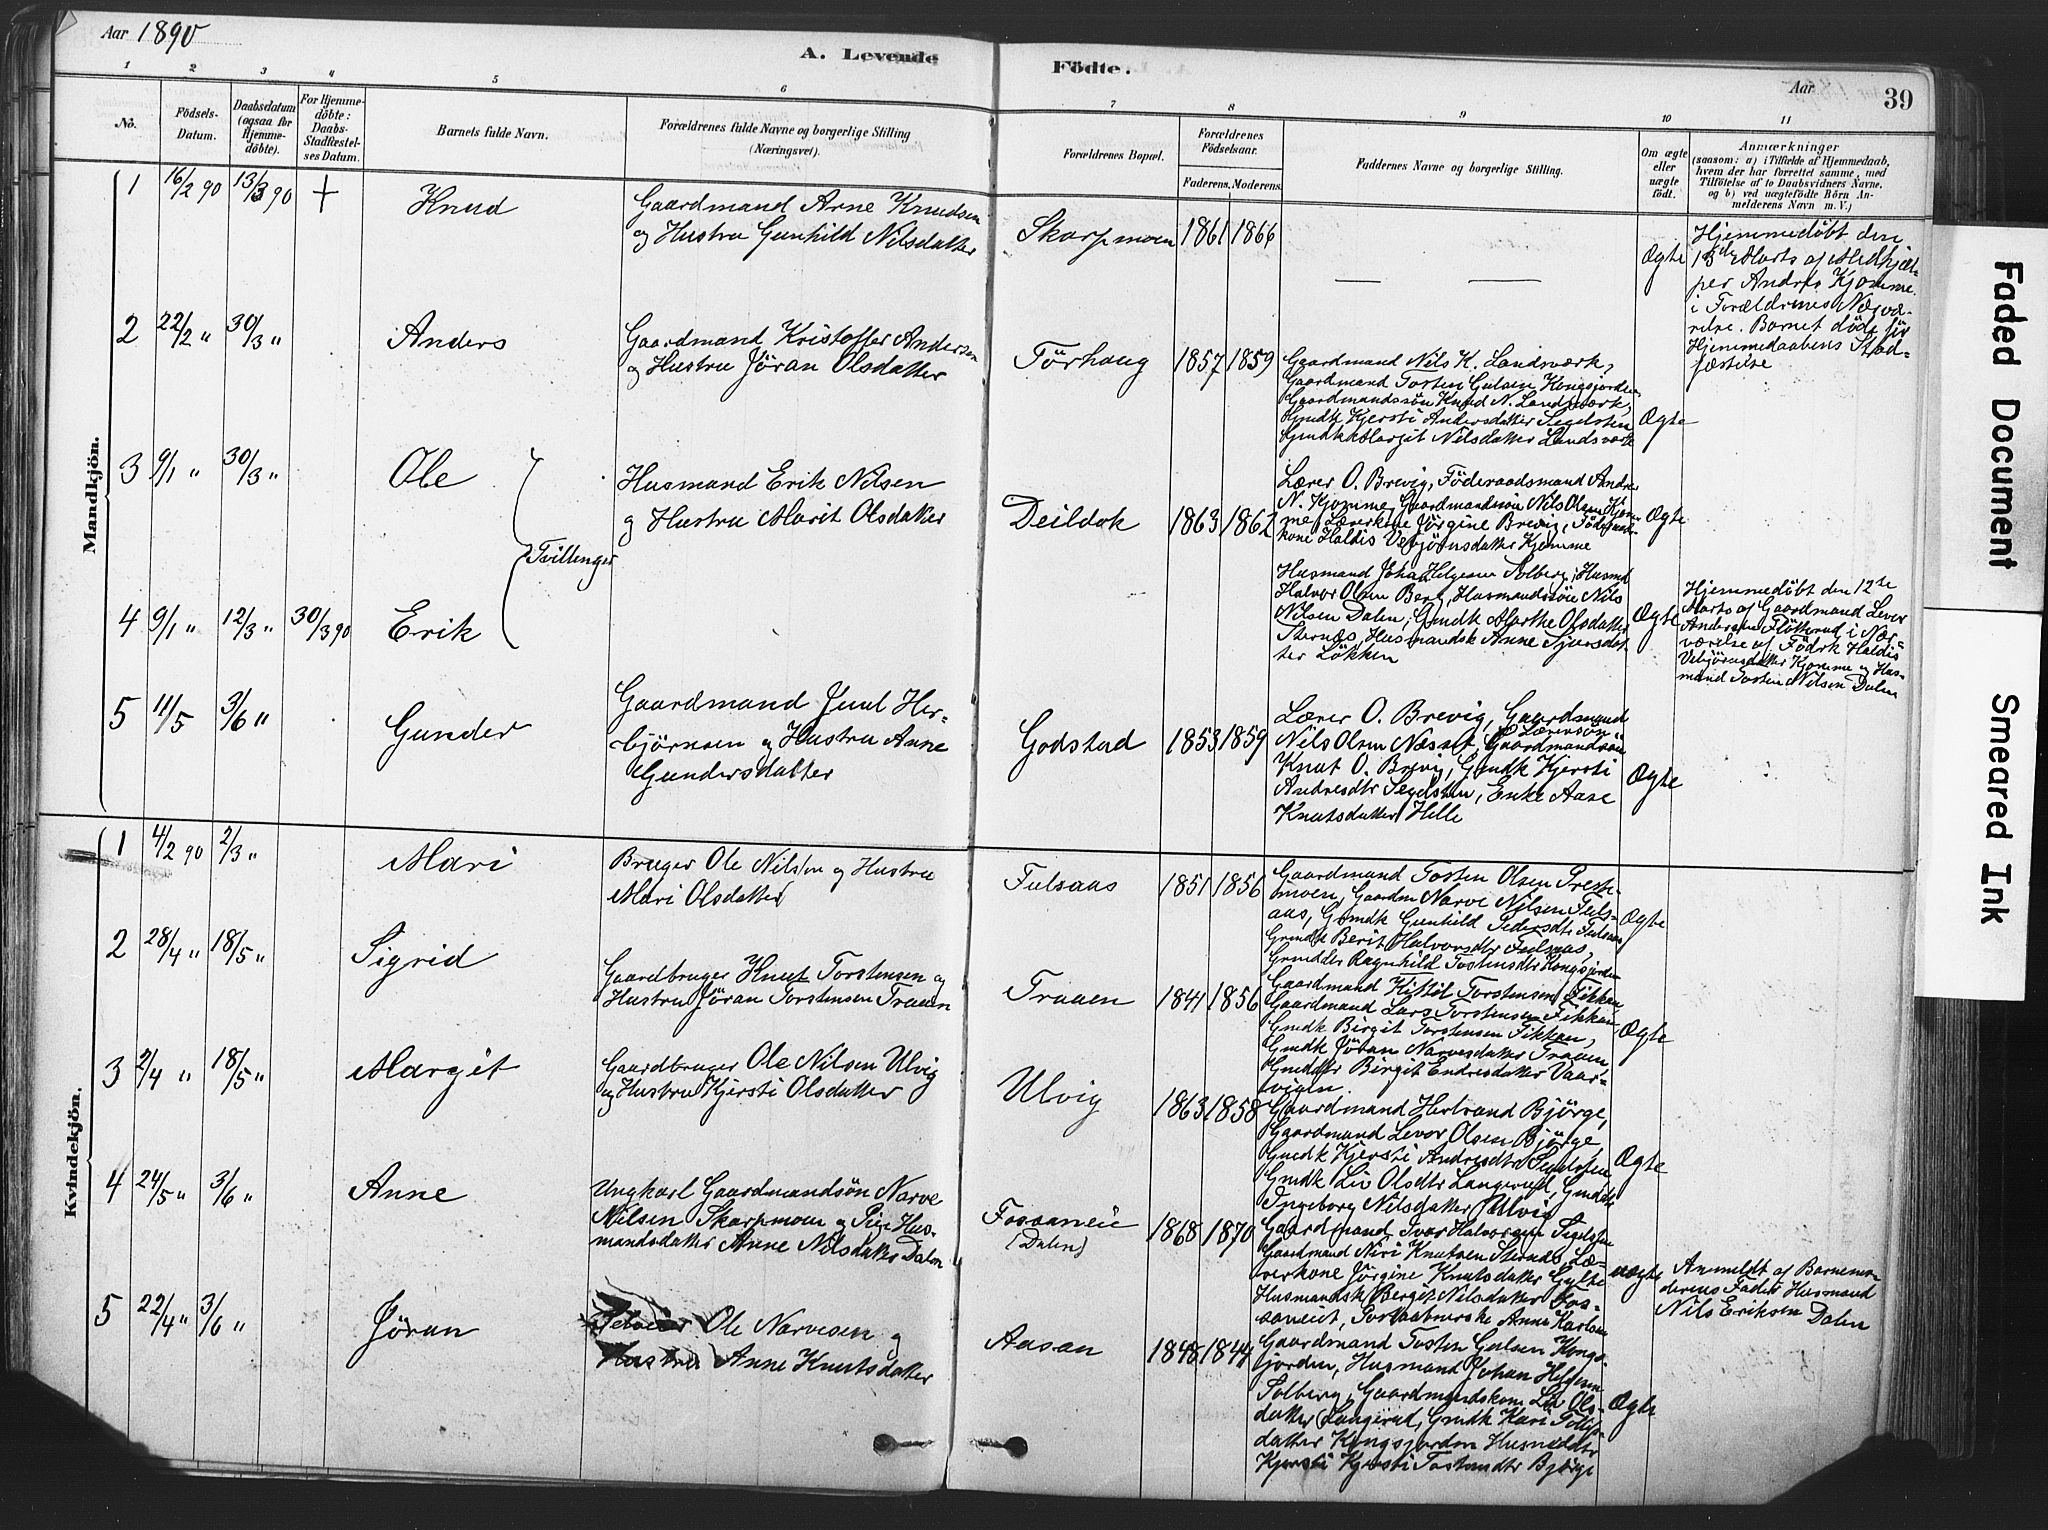 Aar 1890
A. Levende
Födte.
Aar
39
1 2 3 4 5 6 7 8 9 10 11
No.
Födsels-
Datum.
Daabsdatum
(ogsaa for
Hjemme-
döbte).
For Hjemme-
döbte:
Daabs-
Stadfæstel-
ses Datum.
Barnets fulde Navn.
Forældrenes fulde Navne og borgerlige Stilling
(Næringsvei).
Forældrenes Bopæl.
Forældrenes
Födselsaar.
Faderens. Moderens.
Faddernes Navne og borgerlige Stilling.
Om ægte
eller
uægte
födt.
Anmærkninger
(saasom: a) i Tilfælde af Hjemmedaab,
hvem der har forrettet samme, med
Tilföielse af to Daabsvidners Navne,
og b) ved uægtefödte Börn An-
melderens Navn m. V.)
Mandkjön.
1 16/2 90 13/3 90 +
Knud
Gaardmand Arne Knudsen
og Hustru Gunhild Nilsdatter
Skarpmoen 1861 1866
— —
Ægte
Hjemmedöbt den
13de Marts af Medhjæl-
per Andres Kjomme
i Forældrenes Nærvæ-
relse. Barnet döde för
Hjemmedaabens Stad-
fæstelse
2 22/2 " 30/3 "
Anders
Gaardmand Kristoffer Andersen
og Hustru Jöran Olsdatter
Törhaug 1857 1859
Gaardmand Nils K. Landsværk,
Gaardmand Tosten Gulsen Kongsjorden
Gaardmandssön Knud N. Landsværk,
Gmdk Kjersti Andersdatter Tegelsten
Gmdk Margit Nilsdatter Landsværk
Ægte
3 9/1 " 30/3 "
Ole
Tvillinger
Husmand Erik Nilsen
og Hustru Marit Olsdatter
Deildok 1863 1862
Lærer O. Brevig, Föderaadsmand Andres
N. Kjomme, Gaardmandssön Nils Olsen Kjom-
me, Lærerkone Jörgine Brevig, Föderaads-
kone Haldis Vebjörnsdatter Kjomme
Ægte
4 9/1 " 12/3 " 30/3 90
Erik
Husmand Johan Helgesen Solberg, Husmd
Halvor Olsen Berg, Husmandssön Nils
Nilsen Dalen, Gmdk Marthe Olsdatter
Sternæs, Husmandsk Anne Sjursdat-
ter Lökken
Ægte
Hjemmedöbt den 12te
Marts af Gaardmand Lever
Andersen Flötterud i Nær-
værelse af Födrk Haldis
Vebjörnsdatter Kjomme og Hus-
mand Tosten Nilsen Dalen
5 11/5 3/6 "
Gunder
Gaardmand Juul Her-
björnsen og Hustru Anne
Gundersdatter
Godstad 1853 1859
Lærer O. Brevig, Gaardmand
Nils Olsen Næsset, Gaardmandssön
Lærersön
Knut O. Brevig, Gmdk Kjersti
Andresdtr Tegelsten, Enke Aase
Knutsdatter Helle
Ægte
Kvindekjön.
1 4/2 90 2/3 "
Mari
Bruger Ole Nilsen og Hustru
Mari Olsdatter
Fulsaas 1851 1856
Gaardmand Tosten Olsen Preste-
moen, Gaardm Narve Nilsen Fuls-
aas, Gmdk Gunhild Pedersdtr Fulsaas
Gmdk Berit Halvorsdtr Fulsaas,
Gmddtr Ragnhild Tostensdtr Kongsjorden
Ægte
2 28/4 " 18/5 "
Sigrid
Gaardbruger Knut Torstensen og
Hustru Jöran Torstensen Traaen
Traaen 1841 1856
Gaardmand Kittil Torstensen Fikkan
Gaardmand Lars Torstensen Fikkan
Gmdk Birgit Torstensen Fikkan,
Gmdk Jöran Narvesdatter Traaen,
Gmddtr Birgit Endresdatter Vaar-
viken
Ægte
3 2/4 " 18/5 "
Margit
Gaardbruger Ole Nilsen Ulvig
og Hustru Kjersti Olsdatter
Ulvig 1863 1858
Gaardmand Hertrand Björge,
Gaardmand Levor Olsen Björge,
Gmdk Kjersti Andresdtr Tegelsten,
Gmdk Liv Olsdtr Langerud, Gmddtr
Ingeborg Nilsdatter Ulvig
Ægte
4 24/5 " 3/6 "
Anne
Ungkarl Gaardmandssön Narve
Nilsen Skarpmoen og Pige Hus-
mandsdatter Anne Nilsdatter Dalen
Fossaneie
(Dalen)
1868 1870
Gaardmand Ivar Halvorsen Tegelsten
Gaardmand Niri Knutsen Sternes, Læ-
rerkone Jörgine Knutsdatter Gylte
Husmandsk Bergit Nilsdatter Fos-
saneiet, Anne Karlsen
uægte
Anmeldt af Barnemo-
derens Fader Husmand
Nils Eriksen Dalen
5 22/4 " 3/6 "
Jöran
Ole Narvesen og
Hustru Anne Knutsdatter
Aasan 1848 1844
Gaardmand Tosten Gulsen Kongs-
jorden, Husmand Johan Helgesen
Solberg, Gaardmandskone Liv Ols-
datter Langerud, Gmdk Kari
datter Kongsjorden Husmddtr
Kjersti Kjersti Tostensdtr Björge
Ægte
Faded Document
Smeared Ink